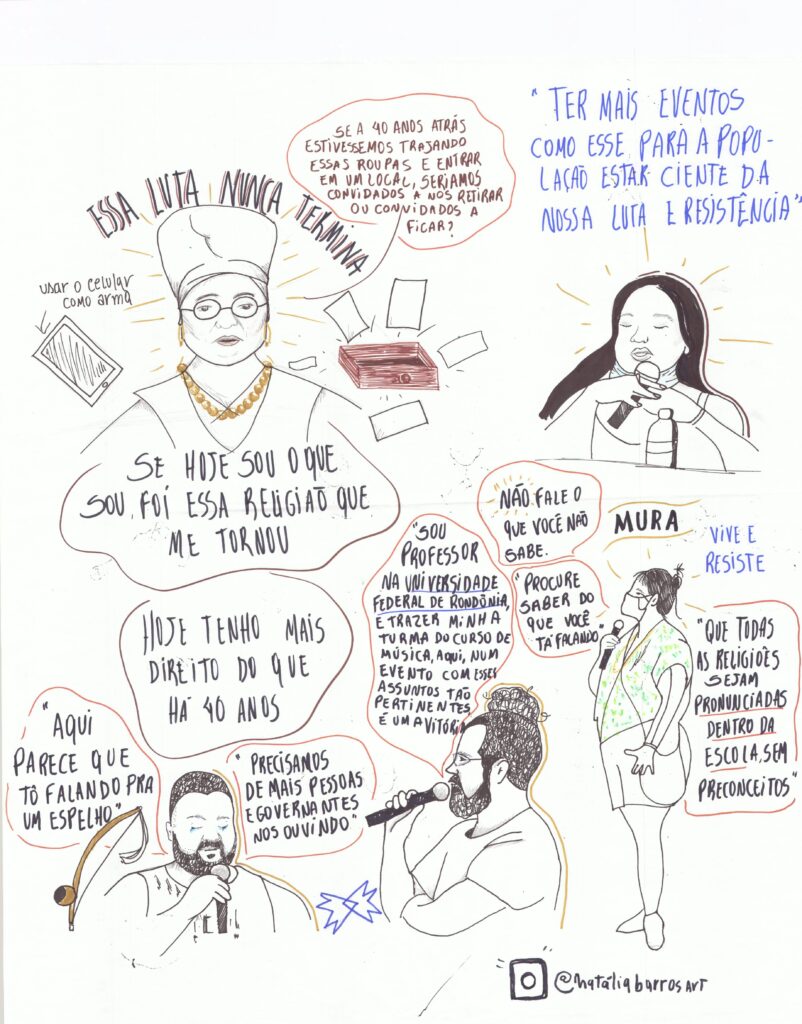 ESSA LUTA NUNCA TERMINA
SE A 40 ANOS ATRÁS
ESTIVESSEMOS TRAJANDO
ESSAS ROUPAS E ENTRAR
EM UM LOCAL, SERIAMOS
CONVIDADOS A NOS RETIRAR
OU CONVIDADOS A
FICAR?
"TER MAIS EVENTOS
COMO ESSE PARA A POPU-
LAÇÃO ESTAR CIENTE DA
NOSSA LUTA E RESISTÊNCIA"
usar o celular
como arma
SE HOJE SOU O QUE
SOU, FOI ESSA RELIGIAÕ QUE
ME TORNOU
HOJE TENHO MAIS
DIREITO DO QUE
HÁ 40 ANOS
"AQUI
PARECE QUE
TÔ FALANDO PRA
UM ESPELHO"
"PRECISAMOS
DE MAIS PESSOAS
E GOVERNANTES
NOS OUVINDO"
"SOU
PROFESSOR
NA UNIVERSIDADE
FEDERAL DE RONDÔNIA,
E TRAZER MINHA
TURMA DO CURSO DE
MÚSICA, AQUI, NUM
EVENTO COM ESSES
ASSUNTOS TÃO
PERTINENTES
É UMA VITÓRIA
NÃO FALE O
QUE VOCÊ NÃO
SABE.
"PROCURE
SABER DO
QUE VOCÊ
TÁ FALANDO"
MURA
VIVE E
RESISTE
"QUE TODAS
AS RELIGIÕES
SEJAM
PRONUNCIADAS
DENTRO DA
ESCOLA, SEM
PRECONCEITOS"
@natáliabarrosart